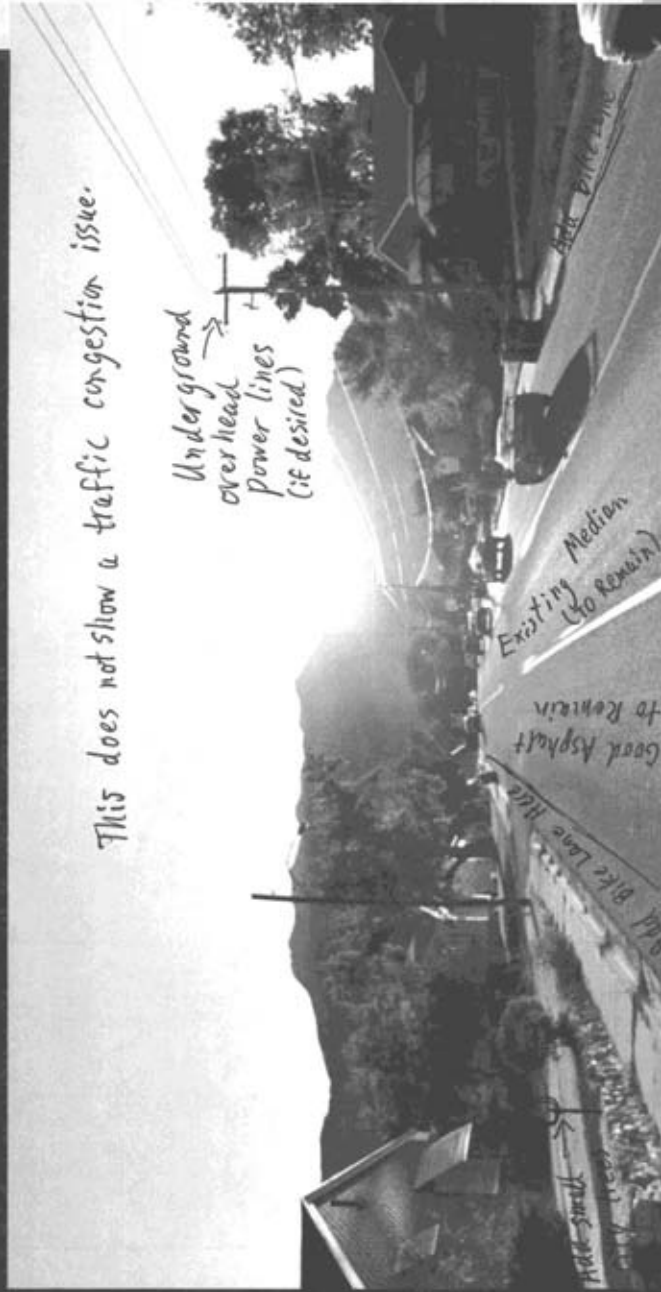 This does not show a traffic congestion issue.
Underground
overhead
power lines
(if desired)
Add Bike Lane
Existing Median
(to Remain)
Good Asphalt
to Remain
Add Bike Lane Here
Add small